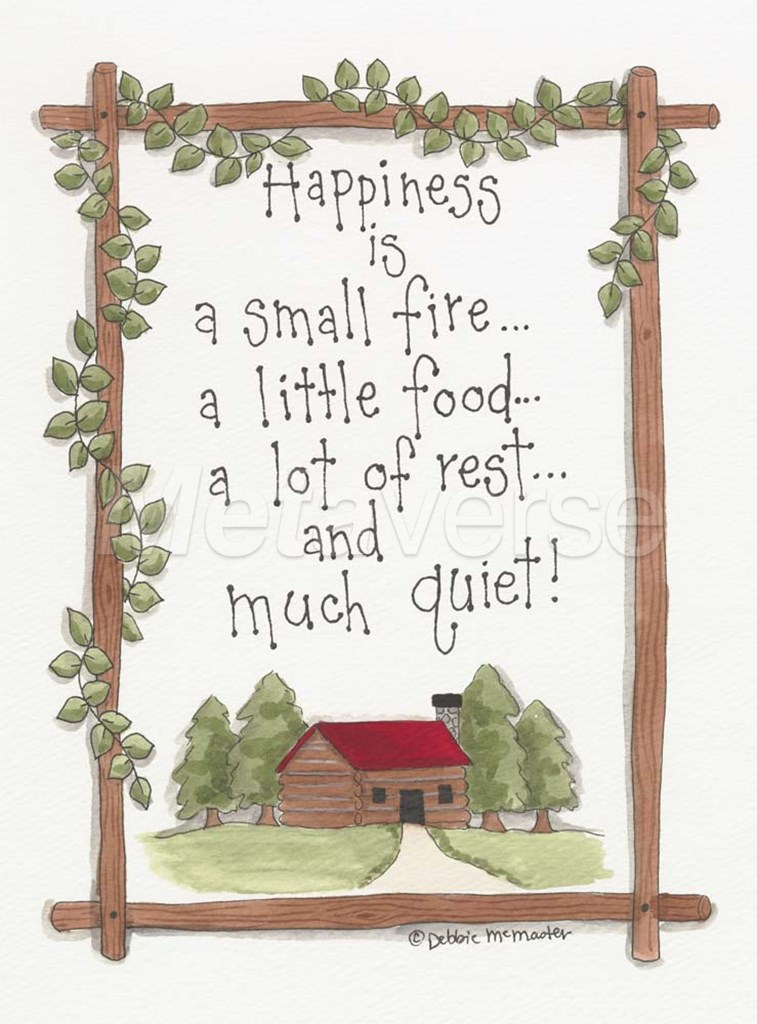 Happiness
is
a small fire...
a little food...
a lot of rest...
and
much quiet!
Metaverse
©Debbie McMaster